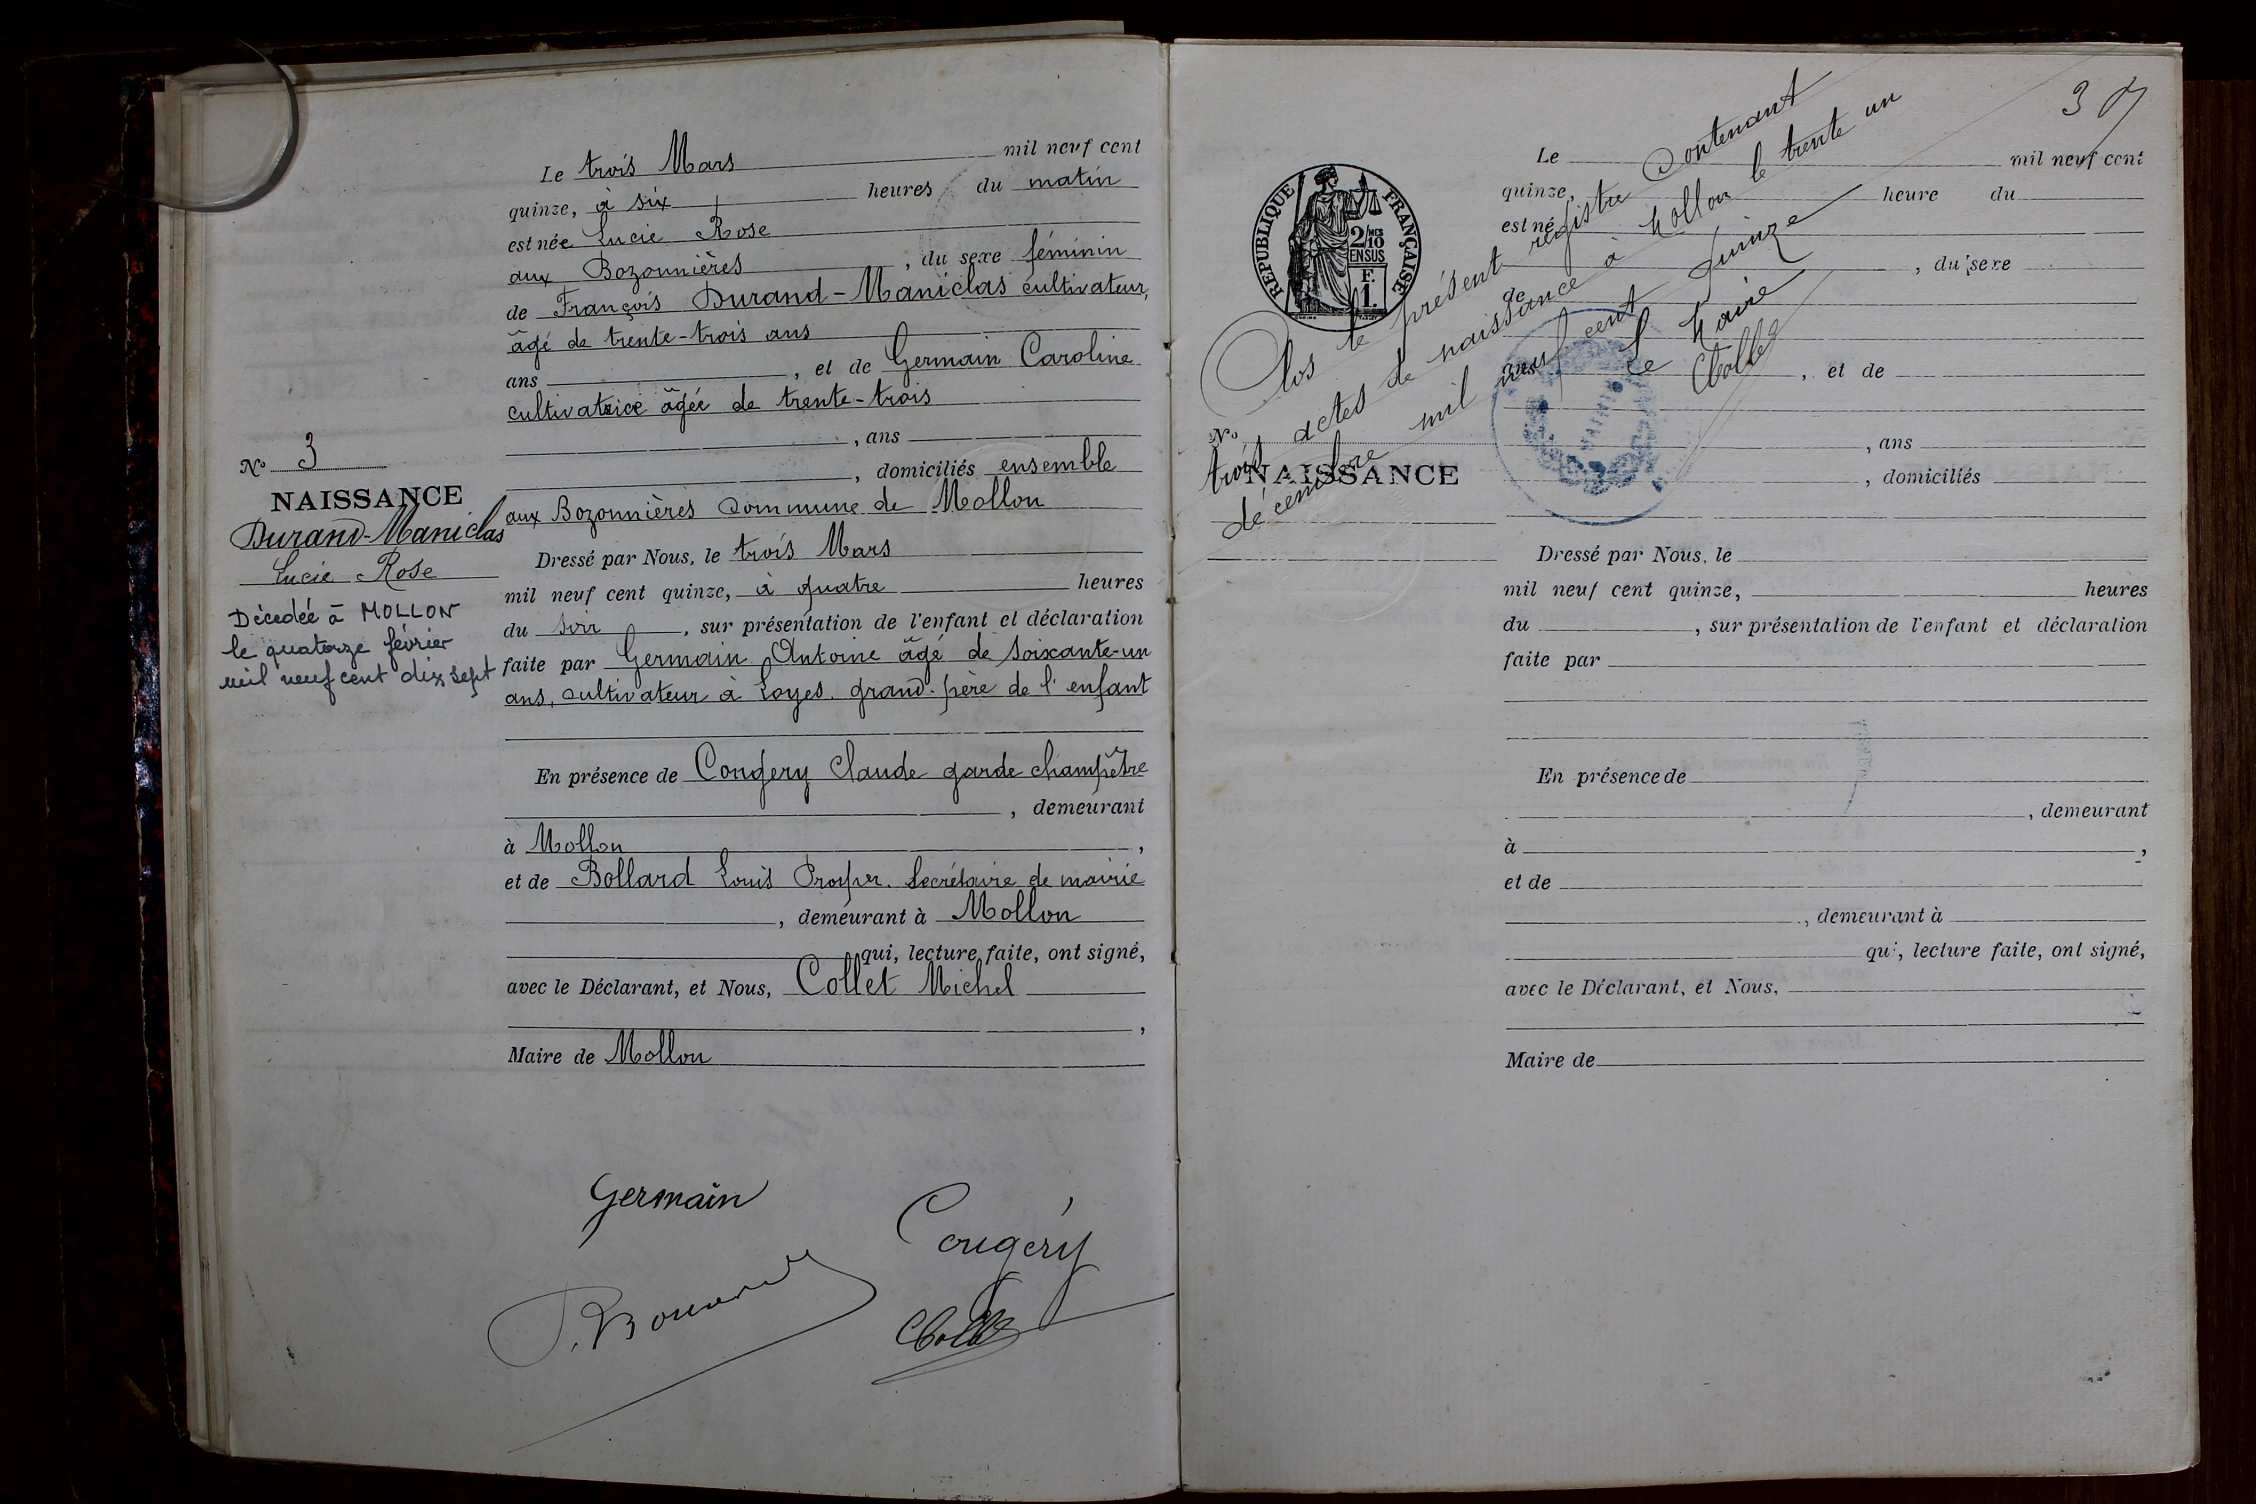 Le trois Mars mil neuf cent
quinze, à six heures du matin
est née Lucie Rose
aux Bozonnières, du sexe féminin
de François Durand-Maniclas cultivateur,
âgé de trente-trois ans
ans, et de Germain Caroline
cultivatrice âgée de trente-trois
, ans
, domiciliés ensemble
aux Bozonnières commune de Mollon
Dressé par Nous, le trois Mars
mil neuf cent quinze, à quatre heures
du soir, sur présentation de l'enfant et déclaration
faite par Germain Antoine âgé de soixante-un
ans, cultivateur à Loyes. grand-père de l'enfant
En présence de Cougery Claude garde champêtre
, demeurant
à Mollon,
et de Bollard Louis Prosper. Secrétaire de mairie
, demeurant à Mollon
qui, lecture faite, ont signé,
avec le Déclarant, et Nous, Collet Michel
,
Maire de Mollon
Germain
Cougery
No 3
NAISSANCE
Durand-Maniclas
Lucie Rose
Décédée à MOLLON
le quatorze février
mil neuf cent dix sept
3
REPUBLIQUE FRANÇAISE
2/10
MES
EN SUS
F.
1.
Clos le présent registre contenant
trois actes de naissance à Mollon le trente un
décembre mil neuf cent quinze
Le Maire
Le mil neuf cent
quinze, heure du
est né
, du sexe
de
ans, et de
, ans
, domiciliés
No
NAISSANCE
Dressé par Nous, le
mil neuf cent quinze, heures
du, sur présentation de l'enfant et déclaration
faite par
En présence de
, demeurant
à,
et de
, demeurant à
qui, lecture faite, ont signé,
avec le Déclarant, et Nous,
Maire de